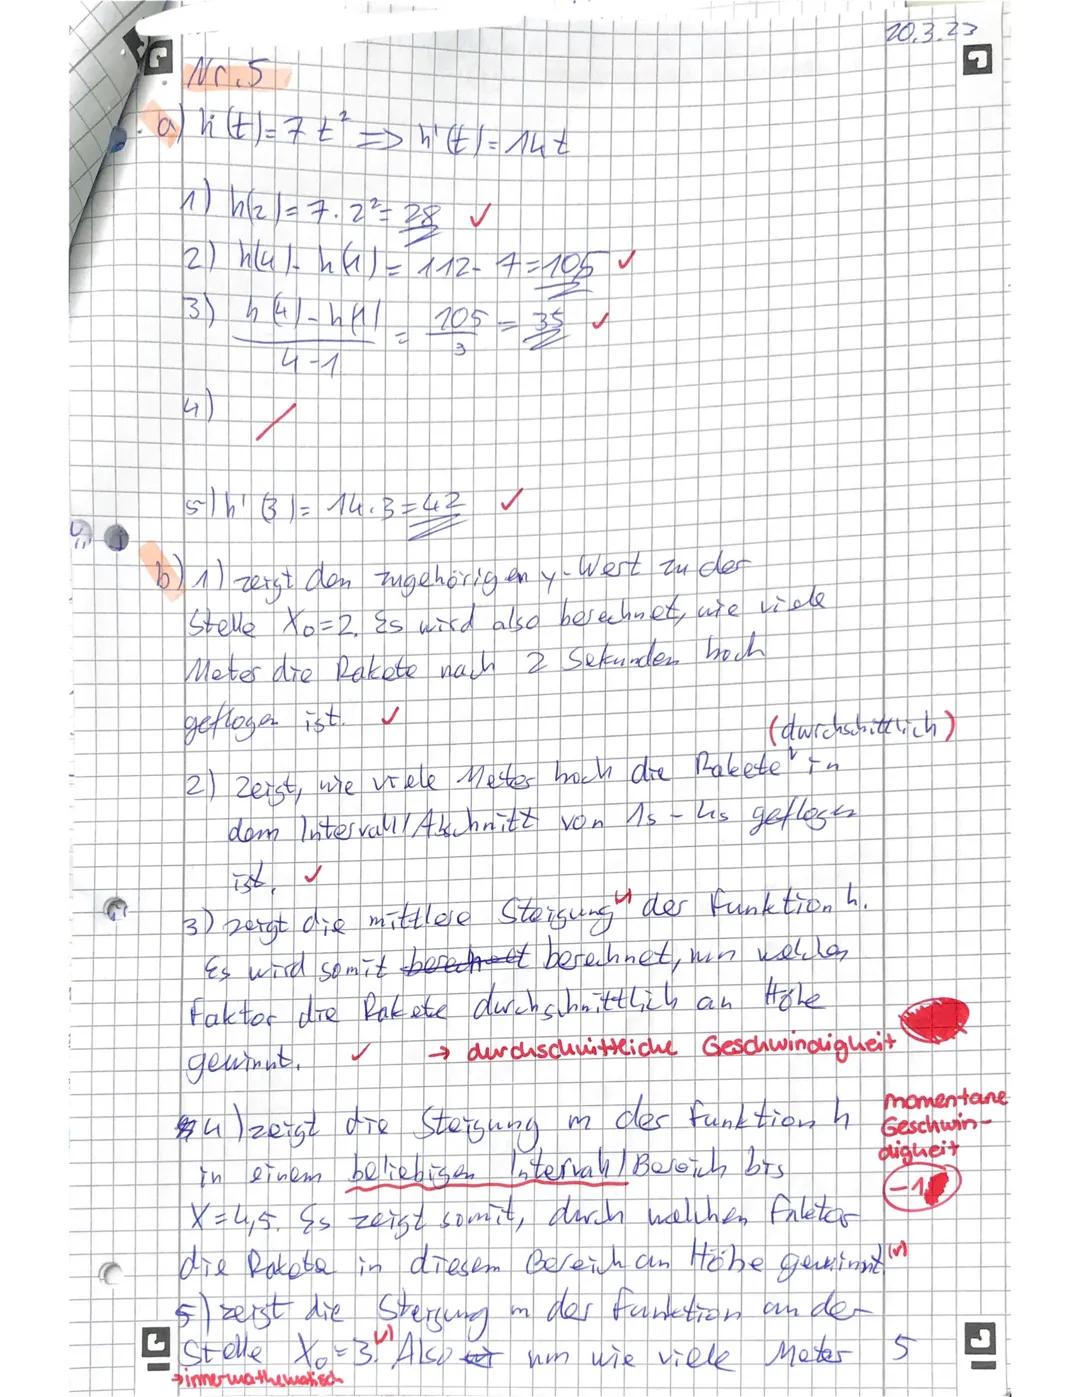 20.3.23
Nr.5
a) h(t)=7t² => h'(t)=14t
1) h(2)=7·2²=28 ✓
2) h(4)-h(1)=112-7=105 ✓
3) h(4)-h(1)/4-1 = 105/3 = 35 ✓
4)
5) h'(3)=14·3=42 ✓
b) 1) zeigt den zugehörigen y-Wert zu der
Stelle X₀=2. Es wird also berechnet, wie viele
Meter die Rakete nach 2 Sekunden hoch
geflogen ist. ✓
(durchschittlich)
2) Zeigt, wie viele Meter hoch die Rakete in
dem Intervall/Abschnitt von 1s-4s geflogen
ist. ✓
3) zeigt die mittlere Steigung der Funktion h.
Es wird somit berechnet berechnet, um welchen
Faktor die Rakete durchschnittlich an Höhe
gewinnt. ✓ → durchschnittliche Geschwindigkeit
momentane
Geschwin-
digkeit
-1
4) zeigt die Steigung m der Funktion h
in einem beliebigen Intervall/Bereich bis
X=4,5. Es zeigt somit, durch welchen Faktor
die Rakete in diesem Bereich an Höhe gewinnt. (✓)
5) zeigt die Steigung m der Funktion an der
Stelle X₀=3. Also um wie viele Meter
→innermathematisch
5